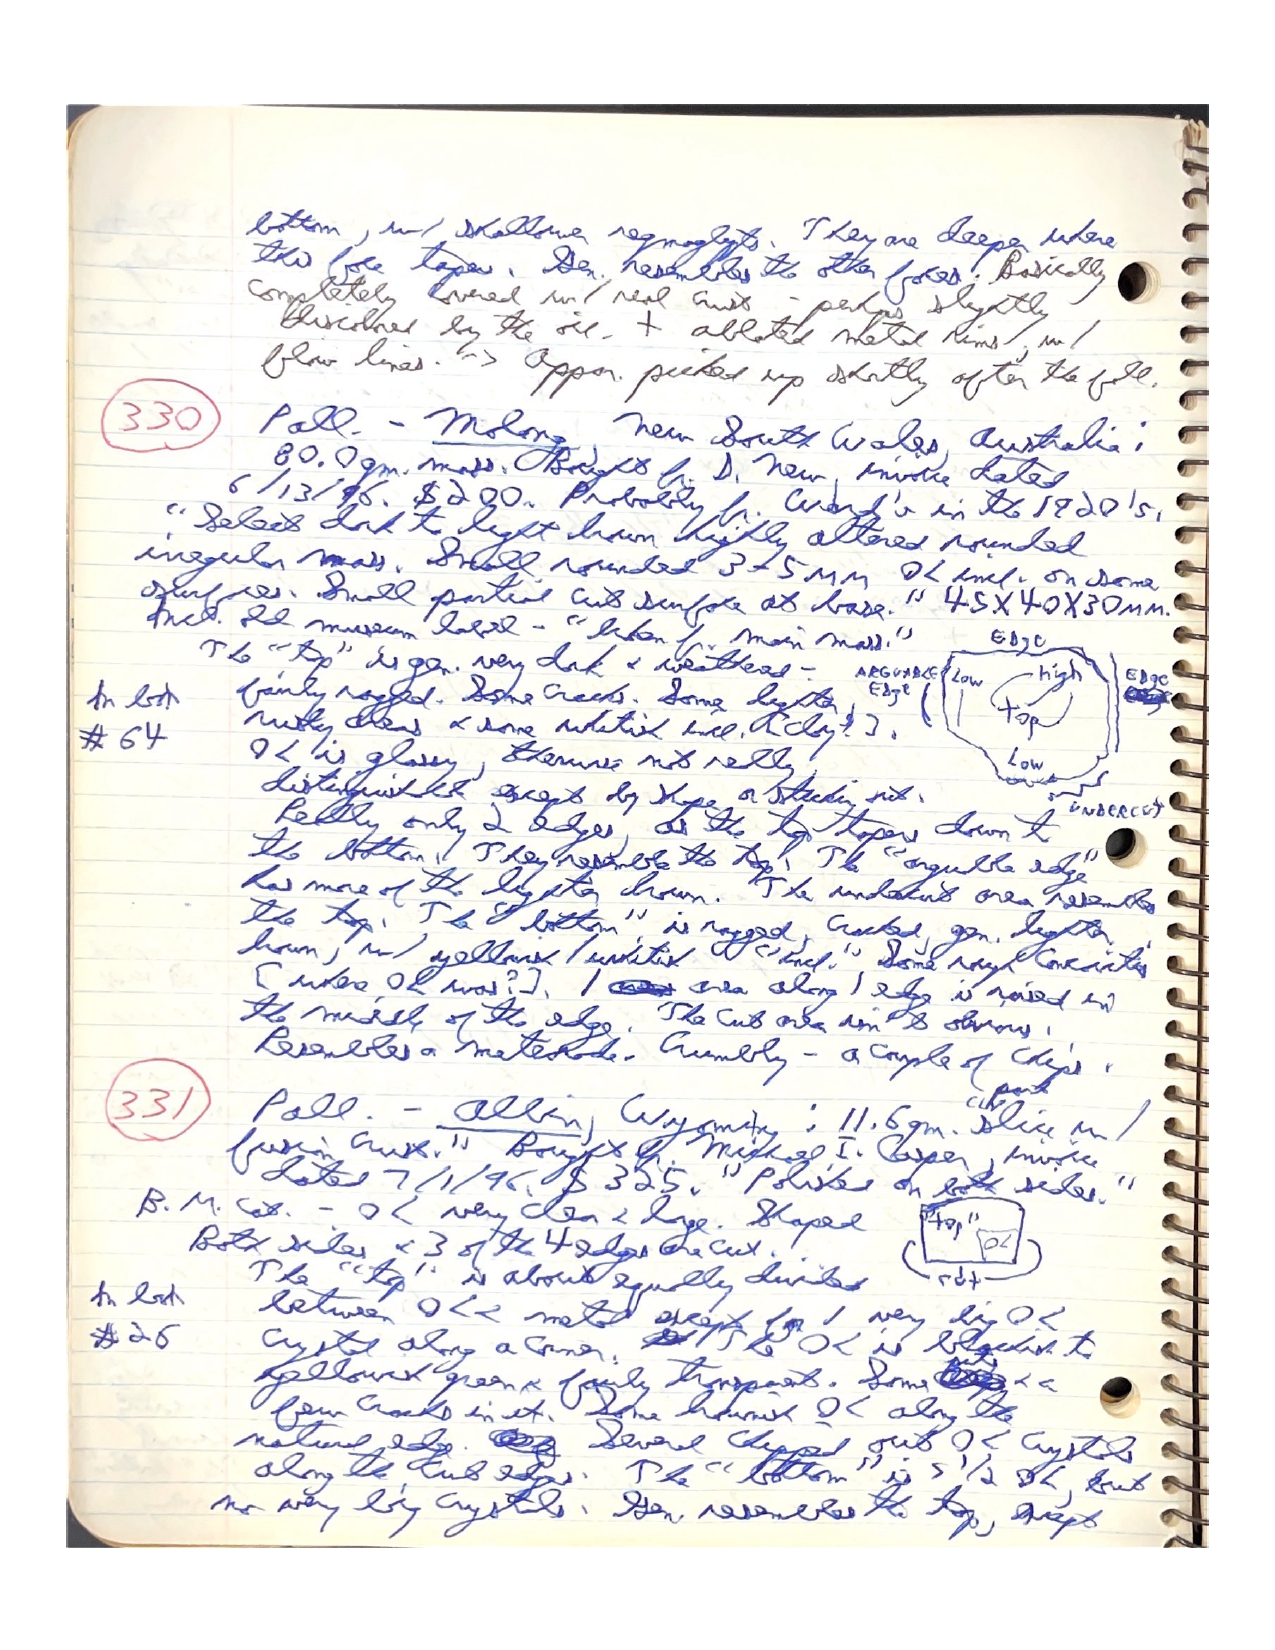 bottom, w/ shallower regmaglypts. They are deeper where
this face tapers. Gen. resembles the other faces. Basically
completely covered w/ real crust - perhaps slightly
discolored by the oil. + ablated metal rims, w/
flow lines. -> Appar. picked up shortly after the fall.
330
Pall. - Molong, New South Wales, Australia:
80.0 gm. mass. Bought fr. D. New, invoice dated
6/13/96. $200. Probably fr. Ward's in the 1920's.
"Select dark to light brown highly altered rounded
irregular mass. Small rounded 3-5 mm Ol incl. on some
surfaces. Small partial cut surface at base." 45X40X30mm.
Incl. old museum label - "taken fr. main mass."
The "top" is gen. very dark & weathered -
fairly ragged. Some cracks. Some lighter,
rusty areas & some whitish incl. [clay?].
Ol is glassy, otherwise not really
distinguishable except by shape or sticking out.
In box
# 64
Edge
ARGUABLE Edge
Low
high
Top
Low
Edge
UNDERCUT
Really only 2 edges, as the top tapers down to
the bottom. They resemble the top. The "arguable edge"
has more of the lighter brown. The undercut area resembles
the top. The "bottom" is ragged, cracked, gen. lighter
brown, w/ yellowish/whitish "incl." Some rough concavities
[where Ol was?]. 1 area along 1 edge is raised in
the middle of the edge. The cut area isn't obvious.
Resembles a meteorode. Crumbly - a couple of chips.
331
Pall. - Albin, Wyoming: 11.6 gm. "part slice w/
fusion crust." Bought fr. Michael I. Casper, invoice
dated 7/1/96. $325. "Polished on both sides."
B. M. Cat. - Ol very clear & large. Shaped
Both sides & 3 of the 4 edges are cut.
"top"
Ol
cut
The "top" is about equally divided
between Ol & metal except for 1 very big Ol
crystal along a corner. The Ol is blackish to
yellowish green & fairly transparent. Some & a
few cracks in it. Some brownish Ol along the
natural edge. Several chipped out Ol crystals
along the cut edges. The "bottom" is > 1/2 Ol, but
no very big crystals. Gen. resembles the top, except
In box
# 26